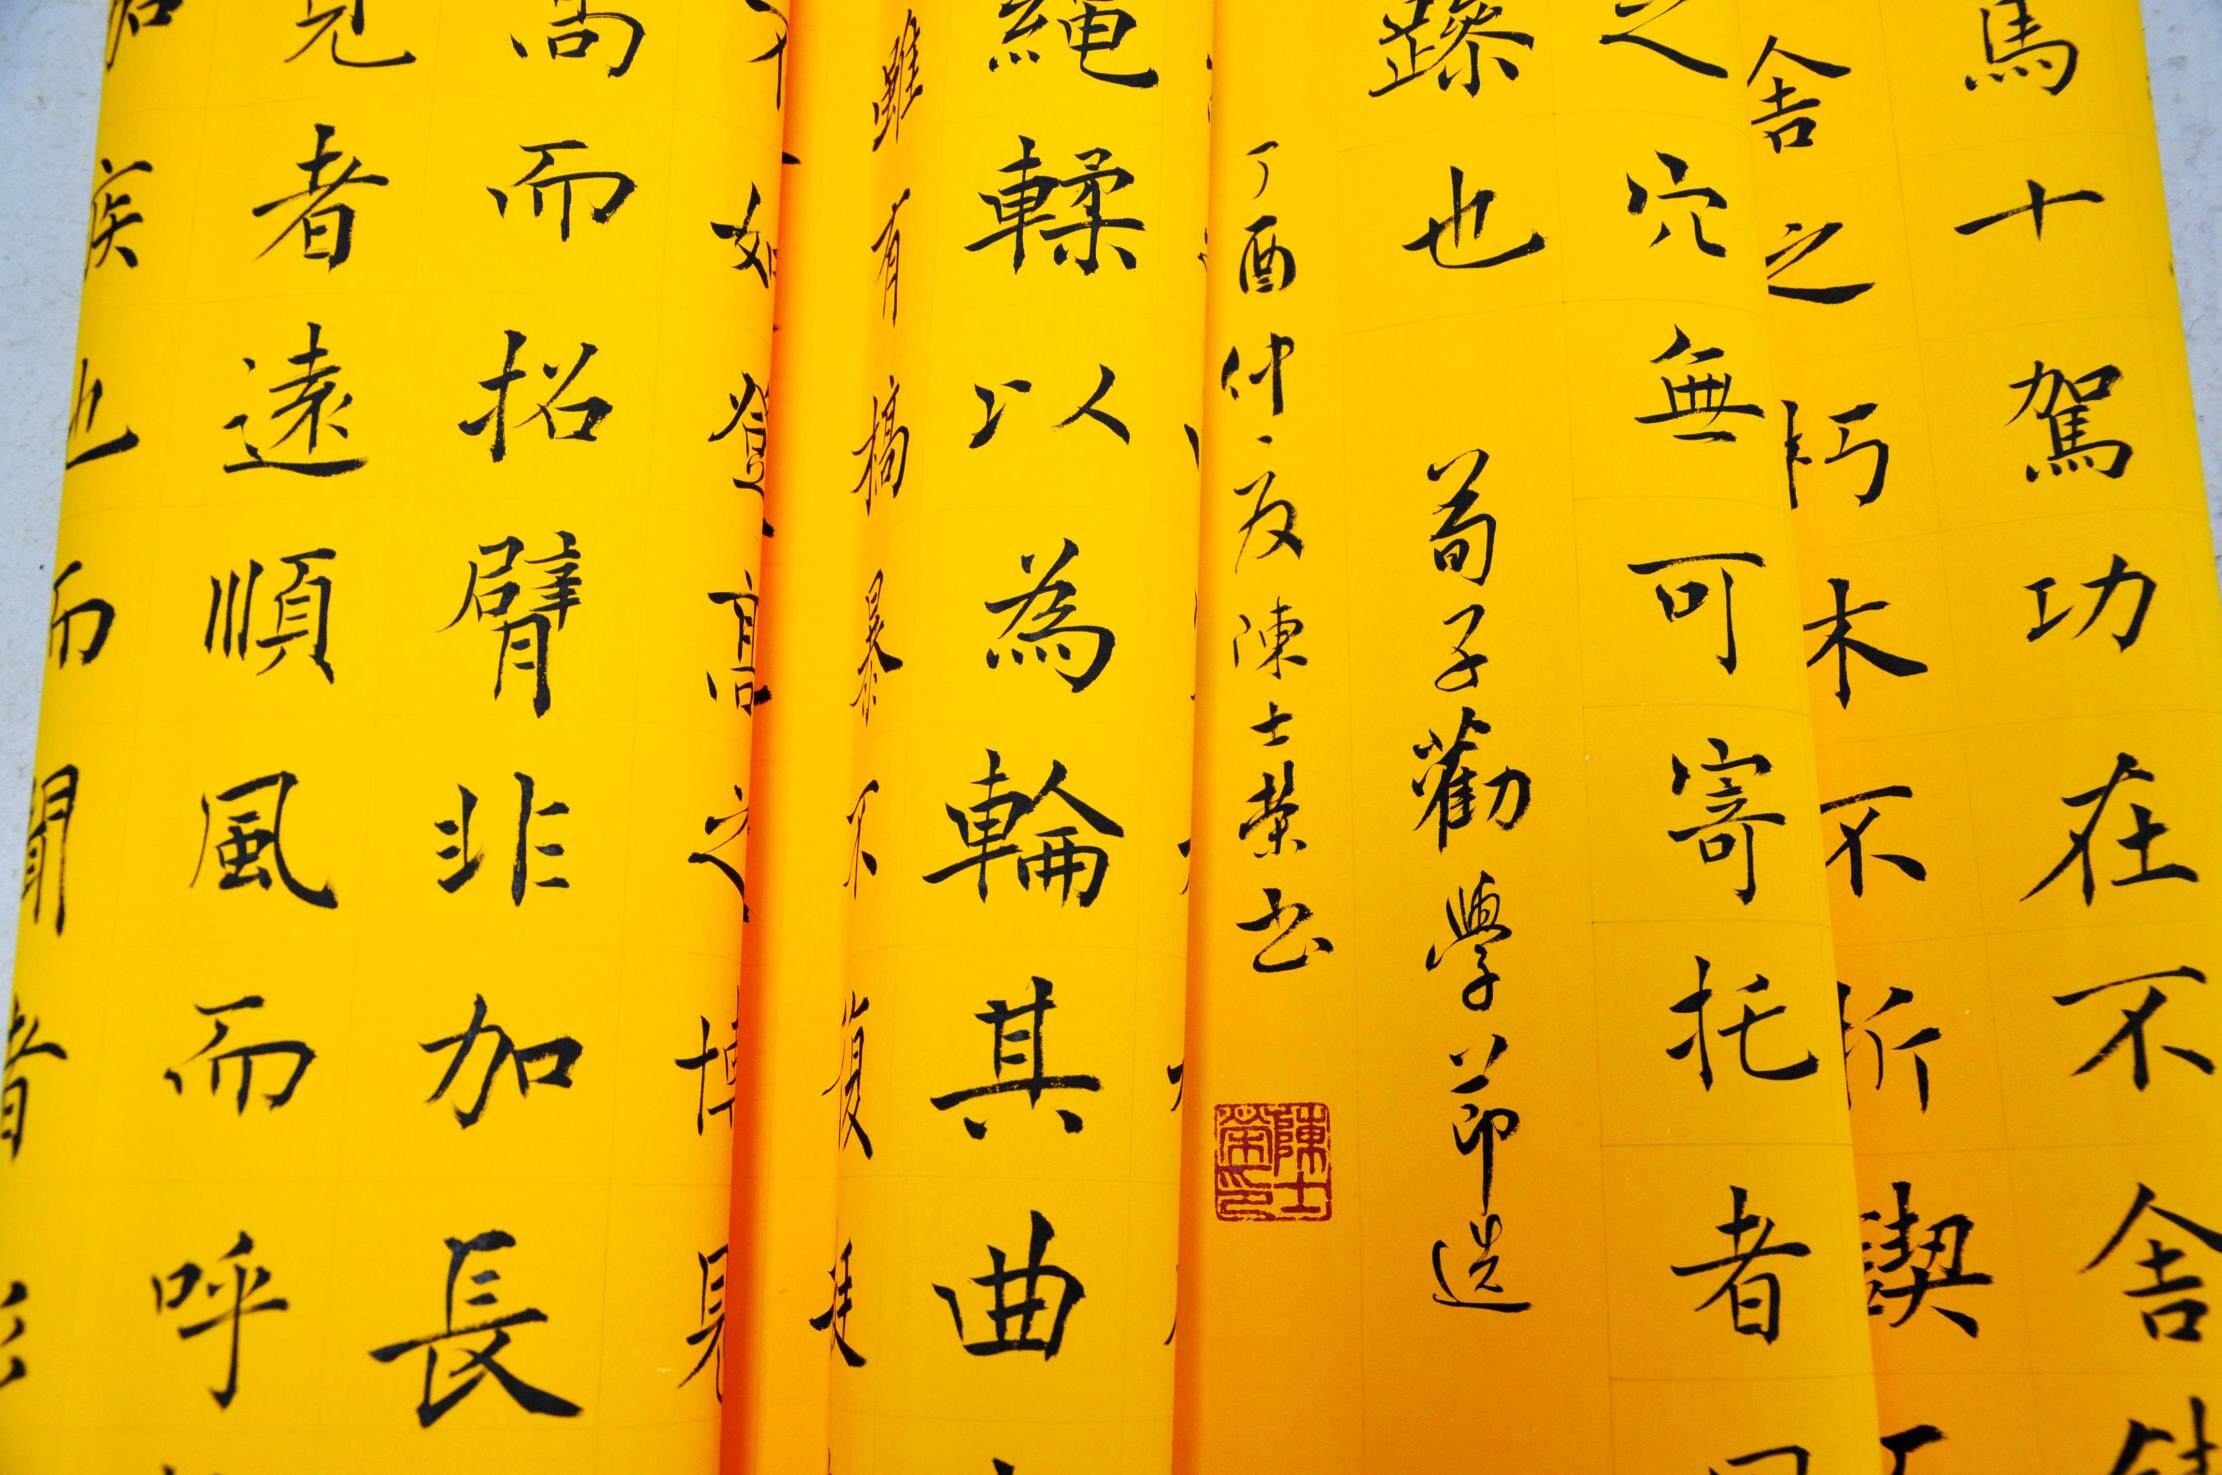 馬十駕功在不舍
舍之朽木不折鍥
之穴無可寄托者
躁也
荀子勸學節選
丁酉仲夏陳士榮书
陳士榮印
繩輮以為輪其曲
雖有槁暴不復挺
如登高之博見
高而招臂非加長
見者遠順風而呼
疾也而聞者彰